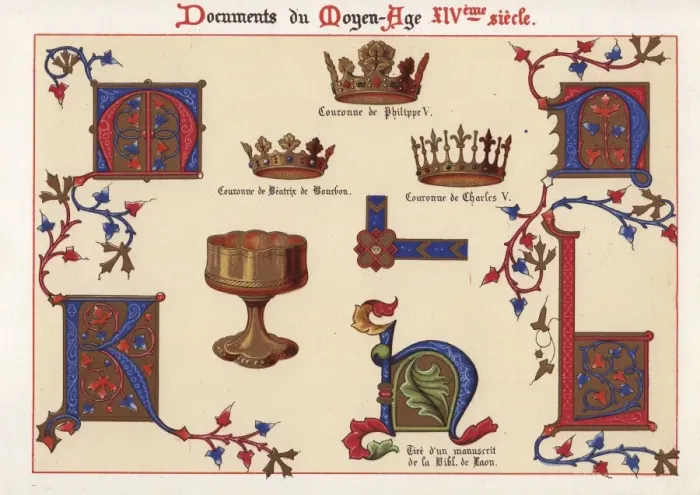 Documents du Moyen-Age XIVème siècle.
Couronne de Philippe V.
Couronne de Béatrix de Bourbon.
Couronne de Charles V.
Tiré d'un manuscrit
de la Bibl. de Laon.